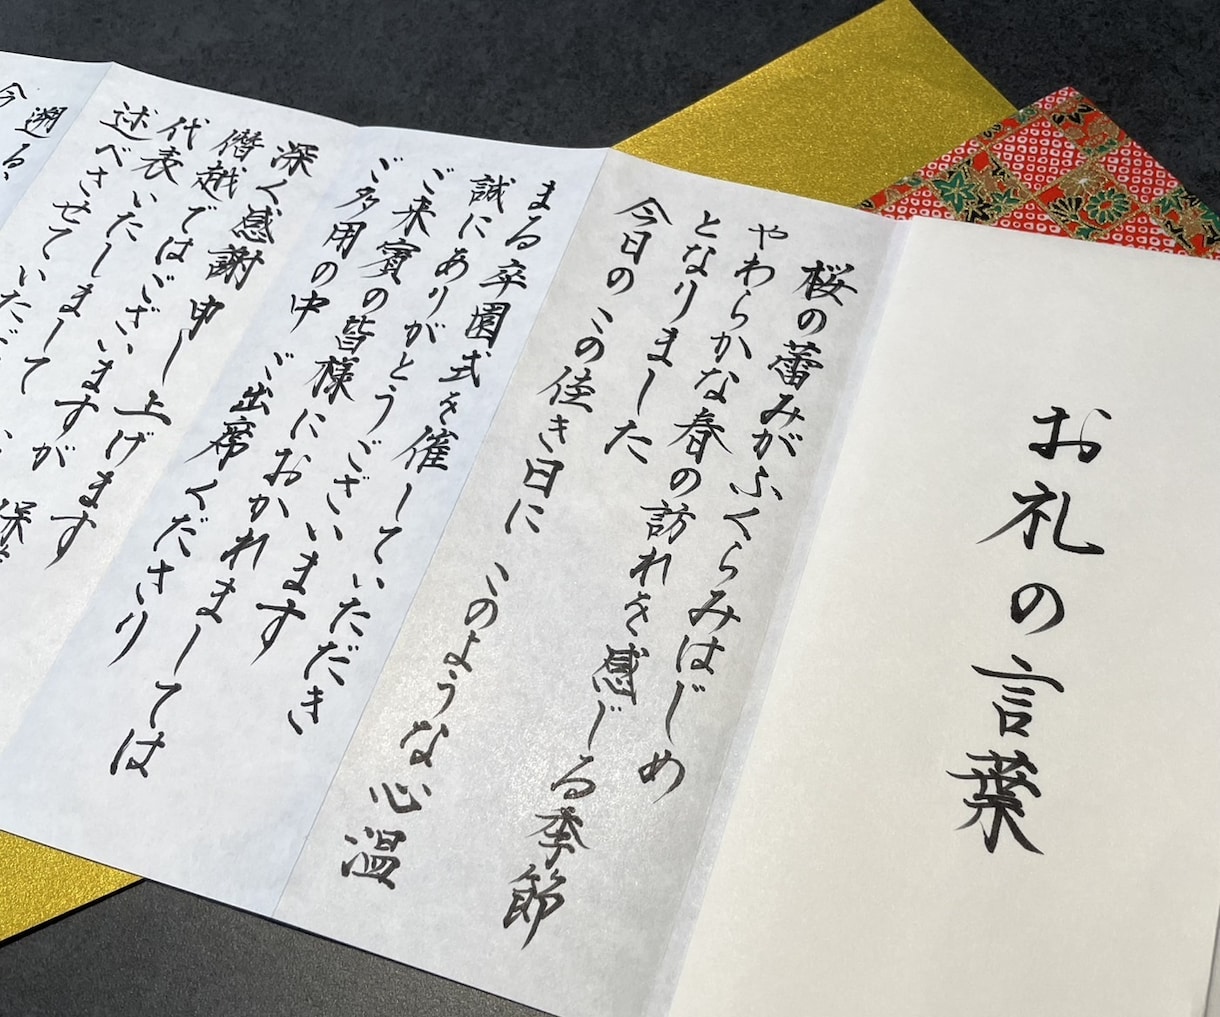 お礼の言葉
桜の蕾みがふくらみはじめ
やわらかな春の訪れを感じる季節
となりました
今日のこの佳き日に このような心温
まる卒園式を催していただき
誠にありがとうございます
ご来賓の皆様におかれましては
ご多用の中 ご出席くださり
深く感謝申し上げます
僭越ではございますが
代表いたしまして
述べさせていただ
遡る
今